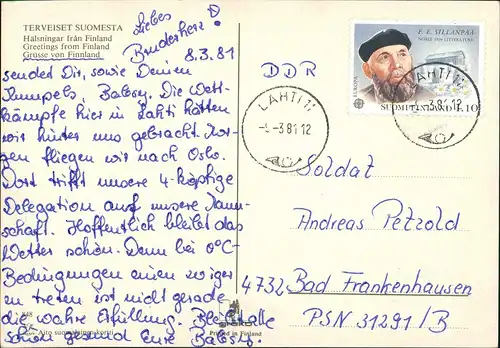 TERVEISET SUOMESTA
Hälsningar från Finland
Greetings from Finland
Grüsse von Finnland
Liebes
Bruderherz!
8.3.81
sendet Dir, sowie Deinen
Kumpels, Babsy. Die Wett-
kämpfe hier in Lahti hätten
wir hinter uns gebracht. Mor-
gen fliegen wir nach Oslo.
Dort trifft unsere 4-köpfige
Delegation auf unsere Mann-
schaft. Hoffentlich bleibt das
Wetter schön. Denn bei 0°C-
Bedingungen einen
zu treten ist nicht gerade
die wahre Erfüllung. Bleibt alle
schön gesund Eure Babsy.
848
Aito suomalainen kortti
Printed in Finland
DDR
LAHTI 1
-3.81 12
F. E. SILLANPÄÄ
NOBEL 1939 LITTERATURE
EUROPA
SUOMI FINLAND 1,10
LAHTI 1
-3.81 12
Soldat
Andreas Petzold
4732 Bad Frankenhausen
PSN 31291/B